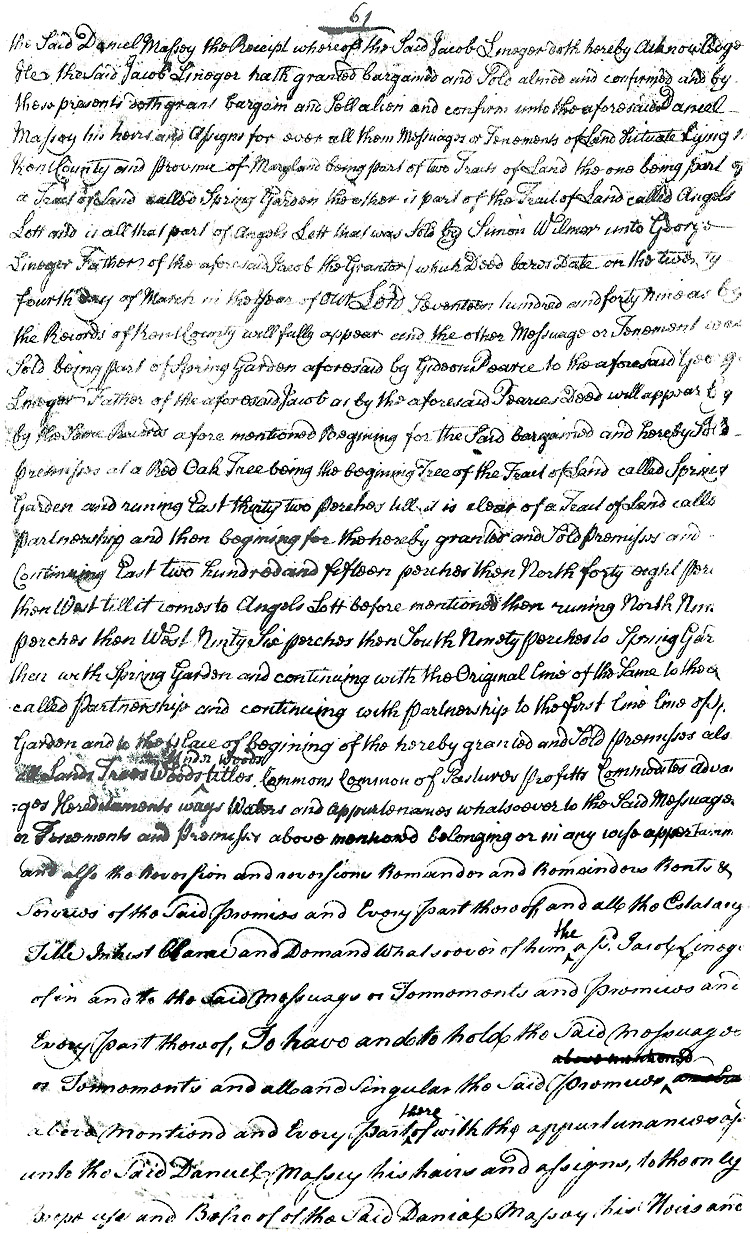 61
the Said Daniel Massey the Receipt whereof the Said Jacob Lineger doth hereby Acknowledge
He the Said Jacob Lineger hath granted bargained and Sold aliened and confirmed and by
these presents doth grant bargain and Sell alien and confirm unto the aforesaid Daniel
Massey his heirs and Assigns for ever all them Messuages or Tenements of Land Situate Lying
Kent County and Province of Maryland being part of two Tracts of Land the one being part of
a Tract of Land called Spring Garden the other is part of the Tract of Land called Angels
Lott and is all that part of Angels Lott that was Sold by Simon Wilmer unto George
Lineger Father of the aforesaid Jacob the Grantor which Deed bares Date on the twenty
fourth day of March in the Year of Our Lord Seventeen hundred and forty nine as by
the Records of Kent County will fully appear and the other Messuage or Tenement was
Sold being part of Spring Garden aforesaid by Gideon Pearce to the aforesaid George
Lineger Father of the aforesaid Jacob as by the aforesaid Pearces Deed will appear by
by the Same Records afore mentioned Begining for the Said bargained and hereby Sold
premisses at a Red Oak Tree being the begining Tree of the Tract of Land called Spring
Garden and runing East thirty two perches till it is clear of a Tract of Land calls
Partnership and then begining for the hereby granted and Sold Premises and
Continuing East two hundred and fifteen perches then North forty eight per
then West till it comes to Angels Lott before mentioned then runing North Nin
perches then West Ninty Six perches then South Ninety perches to Spring Gar
then with Spring Garden and continuing with the Original line of the Same to the
called Partnership and continuing with Partnership to the first line line of Sp
Garden and to the place of begining of the hereby granted and Sold premises als
under Woods
all Lands Trees Woods titles Commons Common of Pastures Profitts Commodites adva
ges Hereditaments ways Waters and appurtenances whatsoever to the Said Messuage
or Tenements and Premises above mentioned belonging or in any wise appertainin
and also the Reversion and reversions Remander and Remainders Rents &
Servises of the Said Premises and Every Part thereof, and all the Estate
Title Intrest Clame and Demand Whatsoever of him the afsd. Jacob Lineg
of in and to the Said Messuage or Tennements and Premises and
Every Part thereof, To have and to hold the Said Messuage
above mentioned
or Tennements and all and Singular the Said Premises
above Mentiond and Every Part thereof with the appurtunances
unto the Said Daniel Massey his hairs and assigns, to the only
use and Behoof of the Said Danial Massey his Heirs and